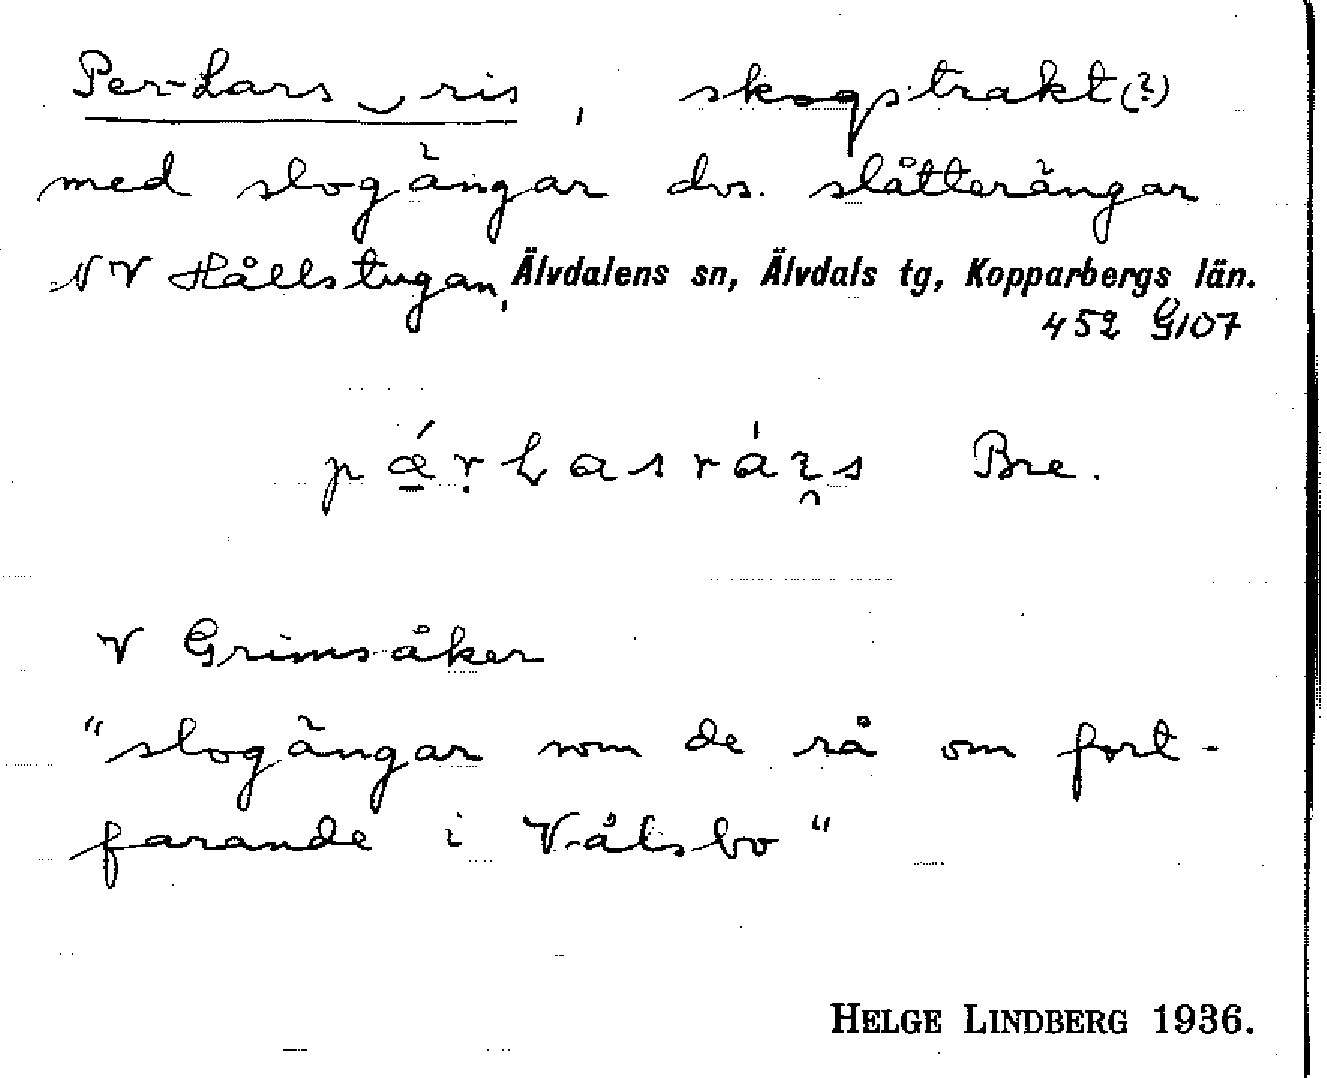 Per-Lars ‿ ris, skogstrakt (?)
med slogängar dvs. slåtterängar
NV Hållstugan, Älvdalens sn, Älvdals tg, Kopparbergs län.
452 G107
Bre.
V Grimsåker
"slogängar som de rå om fort-
farande i Våtsbo"
HELGE LINDBERG 1936.